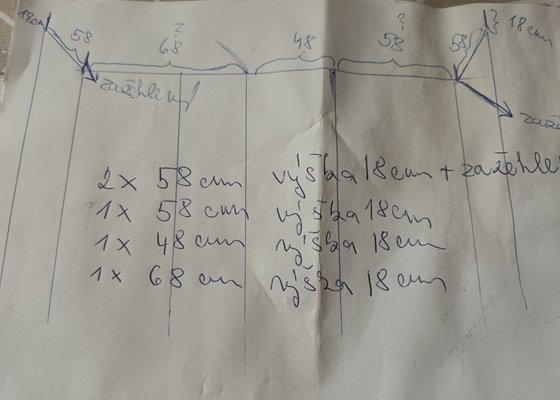 18cm 58 ? 68 48 ? 58 58 18cm
zažehlení
2x 58 cm výška 18cm + zažehle
1x 58 cm výška 18cm
1x 48 cm výška 18cm
1x 68 cm výška 18cm